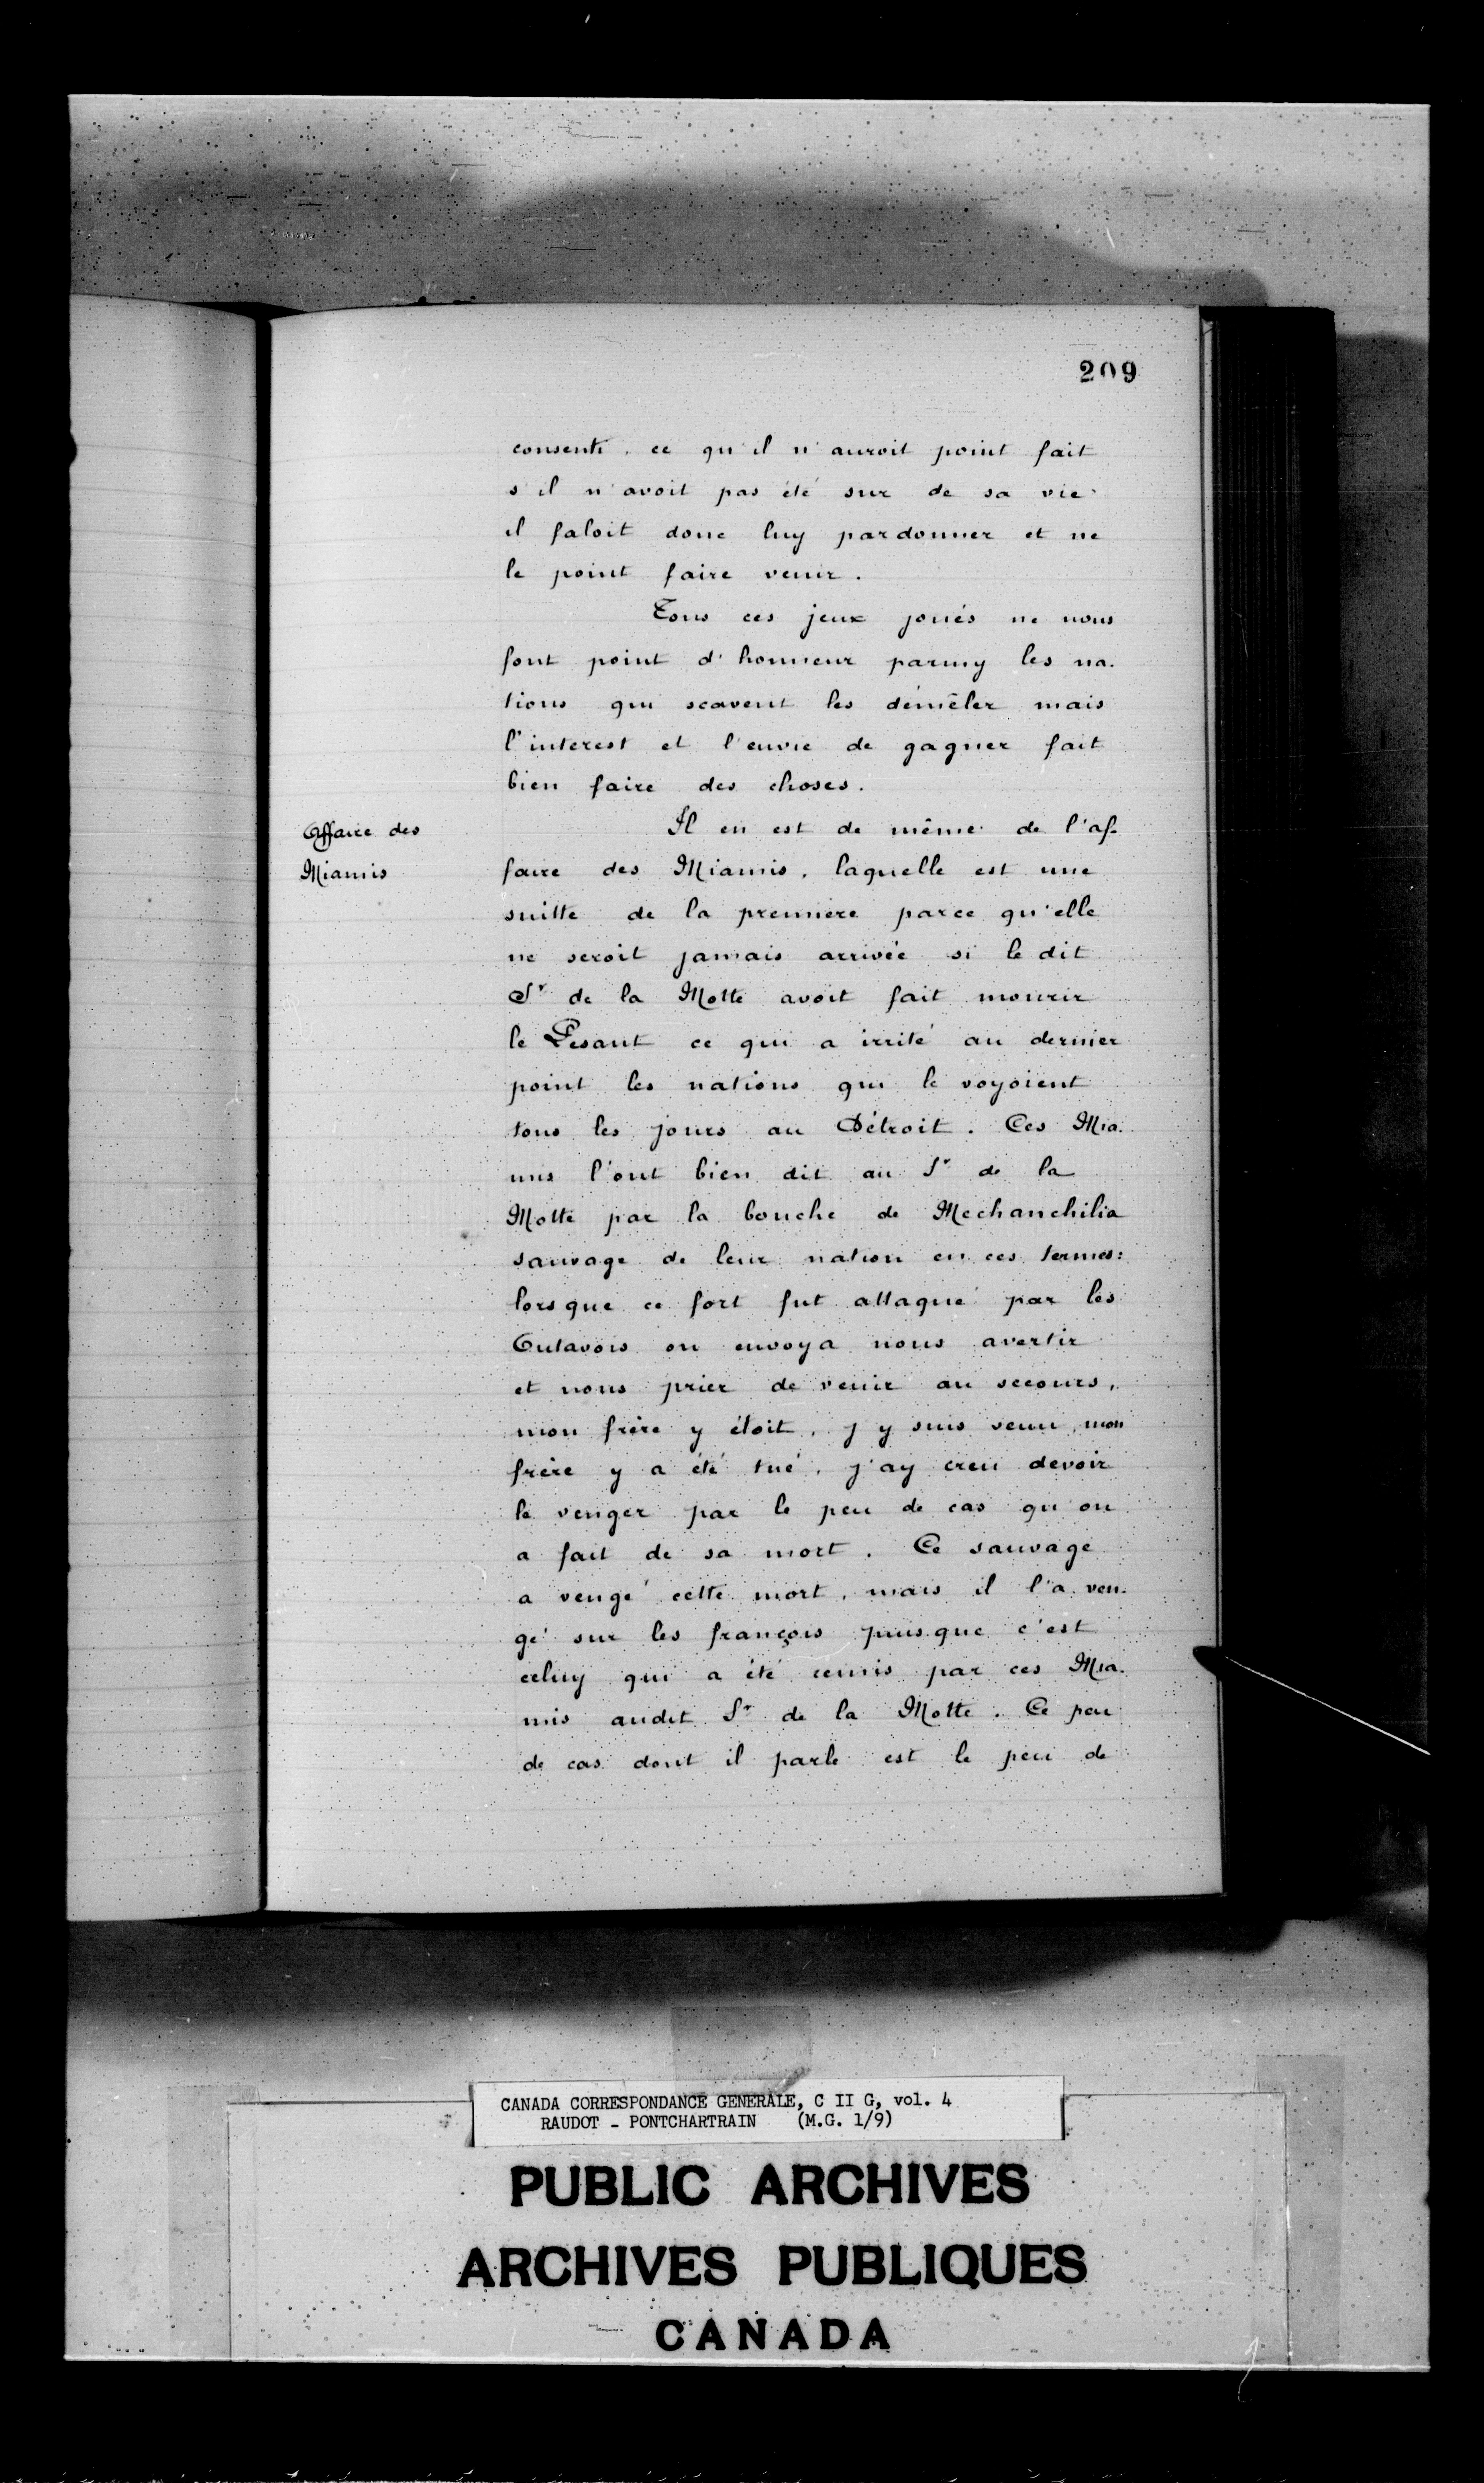 209
consenti, ce qu'il n'auroit point fait
s'il n'avoit pas été sur de sa vie
il faloit donc luy pardonner et ne
le point faire venir.
Tous ces jeux joués ne nous
font point d'honneur parmy les na-
tions qui scavent les démêler mais
l'interest et l'envie de gagner fait
bien faire des choses.
Affaire des
Miamis
Il en est de même de l'af-
faire des Miamis, laquelle est une
suitte de la premiere parce qu'elle
ne seroit jamais arrivée si le dit
Sr de la Motte avoit fait mourir
le Pesant ce qui a irrité au dernier
point les nations qui le voyoient
tous les jours au Détroit. Ces Mia-
mis l'ont bien dit au Sr de la
Motte par la bouche de Mechanchilia
sauvage de leur nation en ces termes:
lorsque ce fort fut attaqué par les
Outavois on envoya nous avertir
et nous prier de venir au secours,
mon frère y étoit, j'y suis venu, mon
frère y a été tué, j'ay creu devoir
le venger par le peu de cas qu'on
a fait de sa mort. Ce sauvage
a vengé cette mort, mais il l'a ven-
gé sur les françois puisque c'est
celuy qui a été remis par ces Mia-
mis audit Sr de la Motte. Ce peu
de cas dont il parle est le peu de
CANADA CORRESPONDANCE GENERALE, C II G, vol. 4
RAUDOT - PONTCHARTRAIN (M.G. 1/9)
PUBLIC ARCHIVES
ARCHIVES PUBLIQUES
CANADA